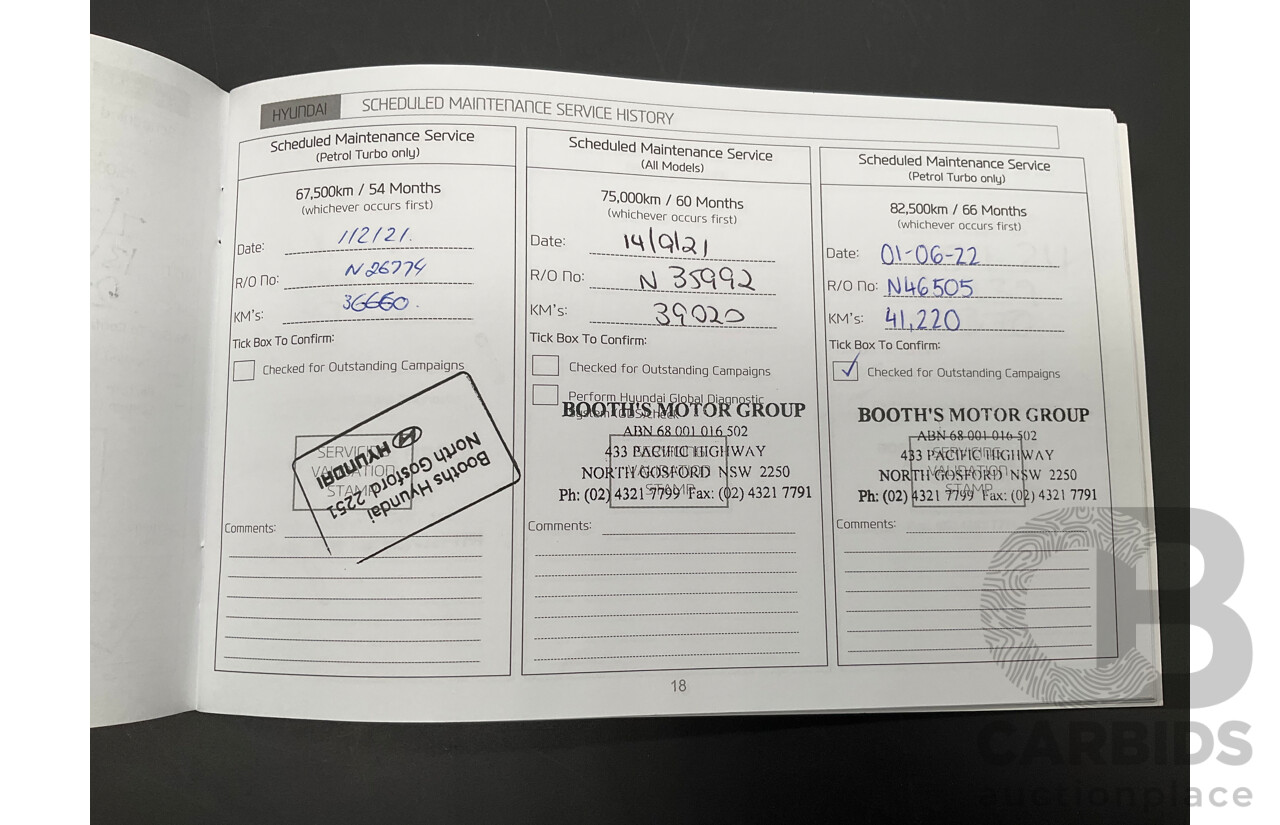 HYUNDAI SCHEDULED MAINTENANCE SERVICE HISTORY
Scheduled Maintenance Service
(Petrol Turbo only)
67,500km / 54 Months
(whichever occurs first)
Date: 1/2/21.
R/O No: N26774
KM's: 36660.
Tick Box To Confirm:
Checked for Outstanding Campaigns
SERVICING
VALIDATION
STAMP
HYUNDAI
Booths Hyundai
North Gosford 2251
Comments:
Scheduled Maintenance Service
(All Models)
75,000km / 60 Months
(whichever occurs first)
Date: 14/9/21
R/O No: N 35992
KM's: 39020
Tick Box To Confirm:
Checked for Outstanding Campaigns
Perform Hyundai Global Diagnostic
System (GDS)check
BOOTH'S MOTOR GROUP
ABN 68 001 016 502
433 PACIFIC HIGHWAY
NORTH GOSFORD NSW 2250
Ph: (02) 4321 7799 Fax: (02) 4321 7791
SERVICING
VALIDATION
STAMP
Comments:
Scheduled Maintenance Service
(Petrol Turbo only)
82,500km / 66 Months
(whichever occurs first)
Date: 01-06-22
R/O No: N46505
KM's: 41,220
Tick Box To Confirm:
Checked for Outstanding Campaigns
BOOTH'S MOTOR GROUP
ABN 68 001 016 502
433 PACIFIC HIGHWAY
NORTH GOSFORD NSW 2250
Ph: (02) 4321 7799 Fax: (02) 4321 7791
SERVICING
VALIDATION
STAMP
Comments:
18
CARBIDS
auctionplace